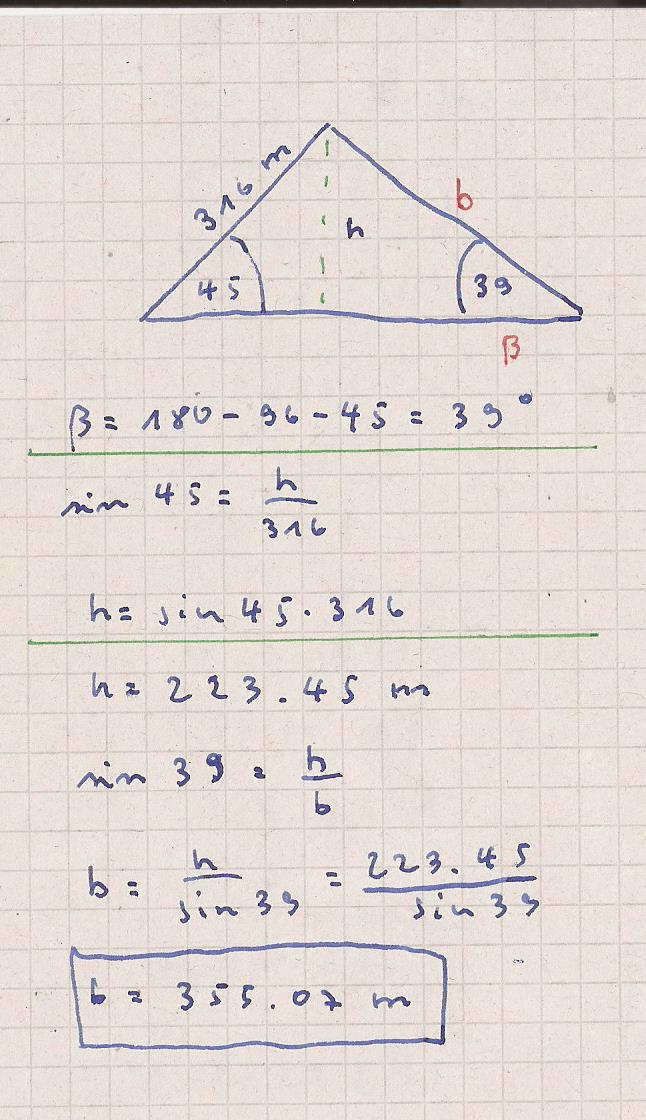 316 m
b
h
45
39
β
β = 180 - 96 - 45 = 39°
sin 45 = h/316
h = sin 45 · 316
h = 223.45 m
sin 39 = h/b
b = h/sin 39 = 223.45/sin 39
b = 355.07 m